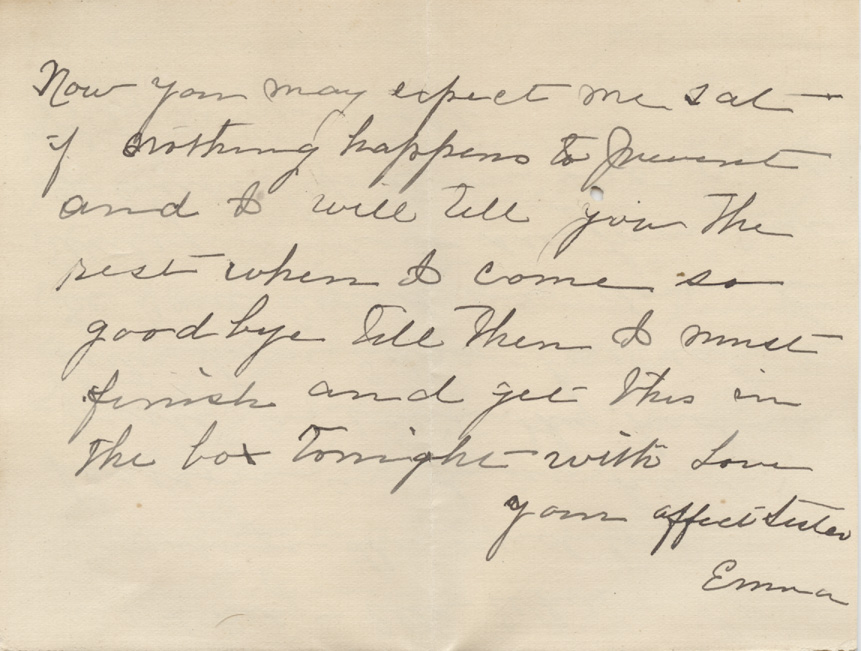 Now you may expect me Sat
if nothing happens to prevent
and I will tell you the
rest when I come so
goodbye till then I must
finish and get this in
the box tonight with Love
your affect Sister
Emma